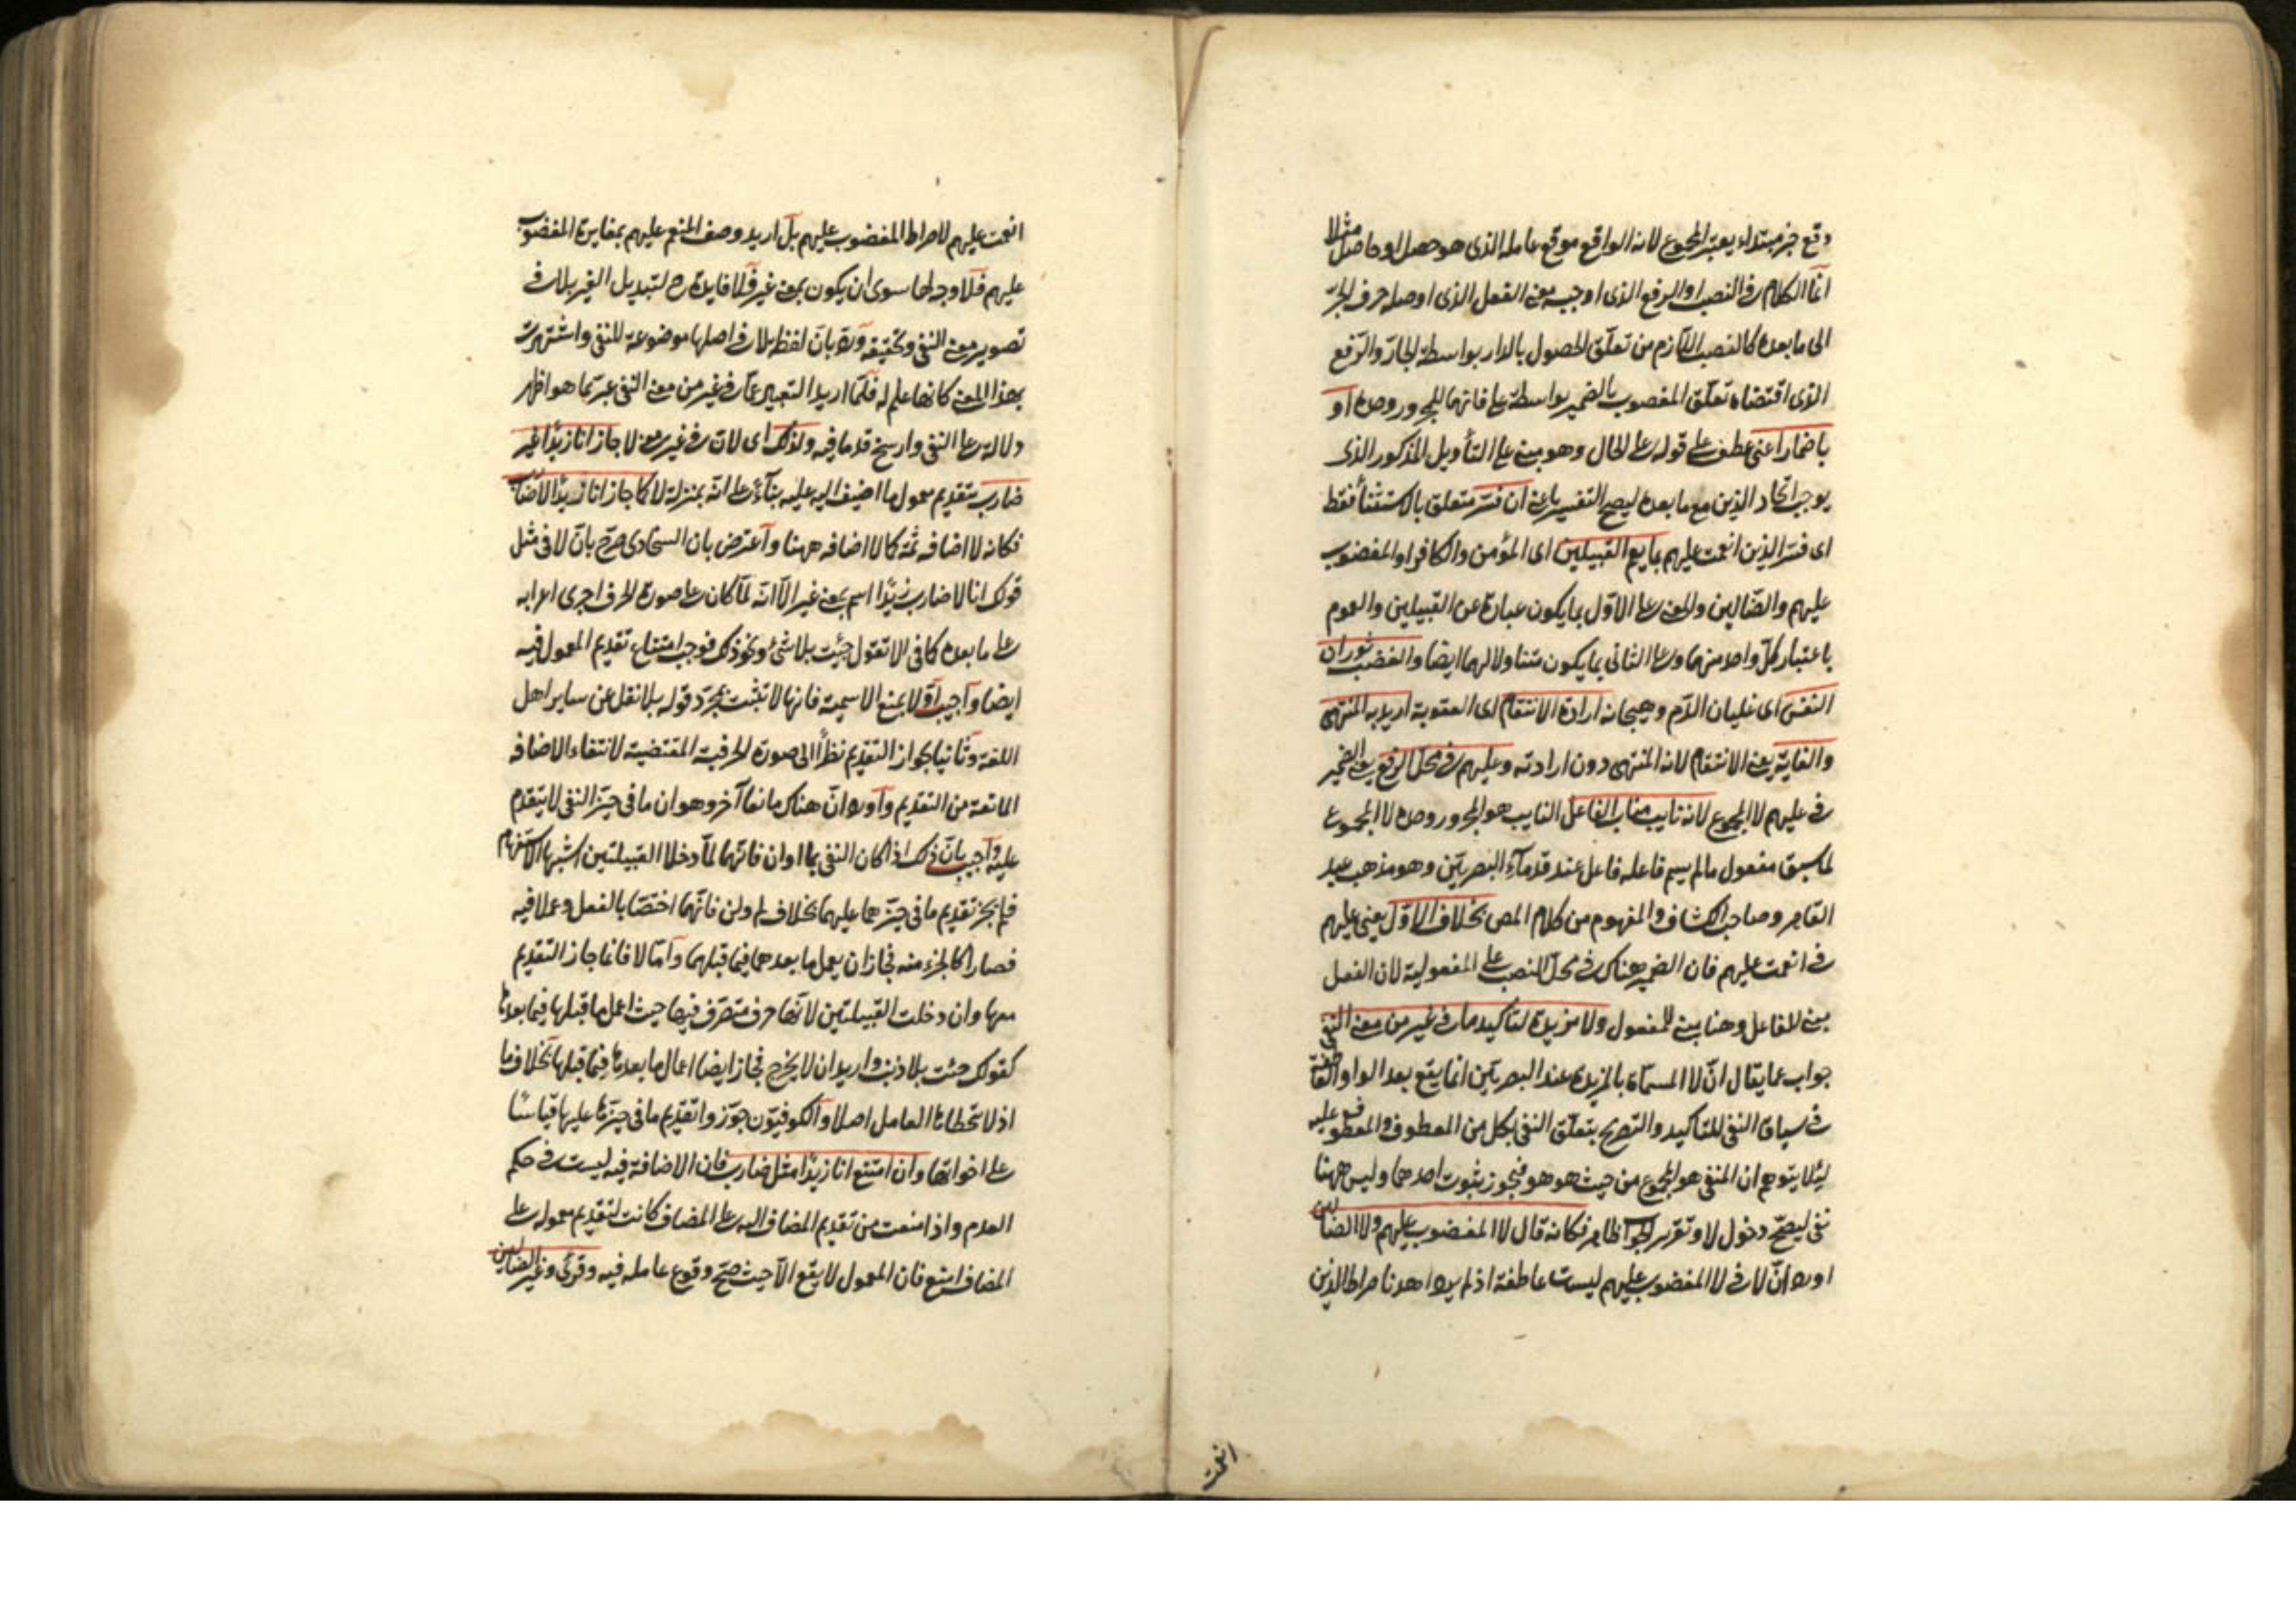 وقع خبر مبتداء يعتبر المجموع لانه الواقع موقع عامله الذى هو حصل او حاصل مثلا
انما الكلام فى النصب او الرفع الذى اوجبه معنى الفعل الذى اوصله حرف الجر
الى ما بعده كالنصب اللازم من تعلق الحصول بالدار بواسطة الجار والرفع
الذى اقتضاه تعلق المغضوب بالضمير بواسطة على فانهما للمجرور وحده او
باضمار اعنى عطف على قوله على الحال وهو مبنى على التأويل المذكور الذى
يوجب اتحاد الذين مع ما بعده ليصح التفسير باعنى ان فسر متعلق بالاستثناء فقط
اى فسر الذين انعمت عليهم بما يعم القبيلين اى المؤمن والكافر او المغضوب
عليهم والضالين والمعنى على الاول بما يكون عبارة عن القبيلين والعموم
باعتبار كل واحد منهما وعلى الثانى بما يكون متناولا لهما ايضا والغضب ثوران
النفس اى غليان الدم وهيجانه ارادة الانتقام اى العقوبة اريد به المنتهى
والغاية يعنى الانتقام لانه المنتهى دون ارادته وعليهم فى محل الرفع يعنى الضمير
فى عليهم لا المجموع لانه نايب مناب الفاعل النايب هو المجرور وحده لا المجموع
لما سبق مفعول ما لم يسم فاعله فاعل عند قدماء البصريين وهو مذهب عبد
القاهر وصاحب الكشاف والمفهوم من كلام المص بخلاف الاول يعنى عليهم
فى انعمت عليهم فان الضمير هناك فى محل النصب على المفعولية لان الفعل
مبنى للفاعل وهنا مبنى للمفعول ولا مزيدة لتاكيد ما فى غير من معنى النفى
جواب عما يقال ان لا المسماة بالمزيدة عند البصريين انما يقع بعد الواو العاطفة
فى سياق النفى للتاكيد والتصريح بتعلق النفى بكل من المعطوف والمعطوف عليه
لئلا يتوهم ان المنفى هو المجموع من حيث هو هو فيجوز ثبوت احدهما وليس ههنا
نفى ليصح دخول لا وتقرير الجواب ظاهر فكانه قال لا المغضوب عليهم ولا الضالين
اورد ان لا فى لا المغضوب عليهم ليست عاطفة اذ لم يرد اهدنا صراط الذين
انعمت
انعمت عليهم لا صراط المغضوب عليهم بل اريد وصف المنعم عليهم بمغايرة المغضوب
عليهم فلا وجه لها سوى ان يكون بمعنى غير فلا فايدة ح لتبديل الغير بلا فى
تصوير معنى النفى وتحقيقه ورد بان لفظ بلا فى اصلها موضوعة للنفى واشتهرت
بهذا المعنى كانها علم له فلما اريد التعبير عما فى غير من معنى النفى عبر بما هو اظهر
دلالة على النفى وارسخ قدما فيه ولذلك اى لان فى غير معنى لا جاز انا زيدا غير
ضارب بتقديم معمول ما اضيف اليه عليه بناء على انه بمنزلة لا كما جاز انا زيدا لا ضارب
فكانه لا اضافه ثمه كما لا اضافه ههنا واعترض بان السخاوى صرح بان لا فى مثل
قولك انا لا ضارب زيدا اسم بمعنى غير الا انه لما كان على صورة الحرف اجرى اعرابه
على ما بعده كما فى الا تقول جئت بلا شئ ونحو ذلك فوجب امتناع تقديم المعمول فيه
ايضا واجيب اولا بمنع الاسمية فانها لا تثبت بمجرد قوله بلا نقل عن ساير اهل
اللغة وثانيا بجواز التقديم نظرا الى صورة الحرفية المقتضية لانتفاء الاضافه
المانعة من التقديم واورد ان هناك مانعا آخر وهو ان ما فى حيز النفى لا يتقدم
عليه واجيب بان ذلك اذا كان النفى بما او ان فانهما لما دخلا القبيلتين اشبها الاستفهام
فلم يجز تقديم ما فى حيزهما عليهما بخلاف لم ولن فانهما اختصا بالفعل وعملا فيه
فصارا كالجزء منه فجاز ان يعمل ما بعدهما فيما قبلهما واما لا فانما جاز التقديم
معها وان دخلت القبيلتين لانها حرف متصرف فيها حيث اعمل ما قبلها فيما بعدها
كقولك جئت بلا ذنب واريد ان لا يخرج فجاز ايضا اعمال ما بعدها فيما قبلها بخلاف ما
اذ لا يتخطاها العامل اصلا والكوفيون جوزوا تقديم ما فى حيزها عليها قياسا
على اخواتها وان امتنع انا زيدا مثل ضارب فان الاضافة فيه ليست فى حكم
العدم واذا منعت من تقديم المضاف اليه على المضاف كانت لتقديم معموله على
المضاف امنع فان المعمول لا يقع الا حيث صح وقوع عامله فيه وقرئ وغير الضالين